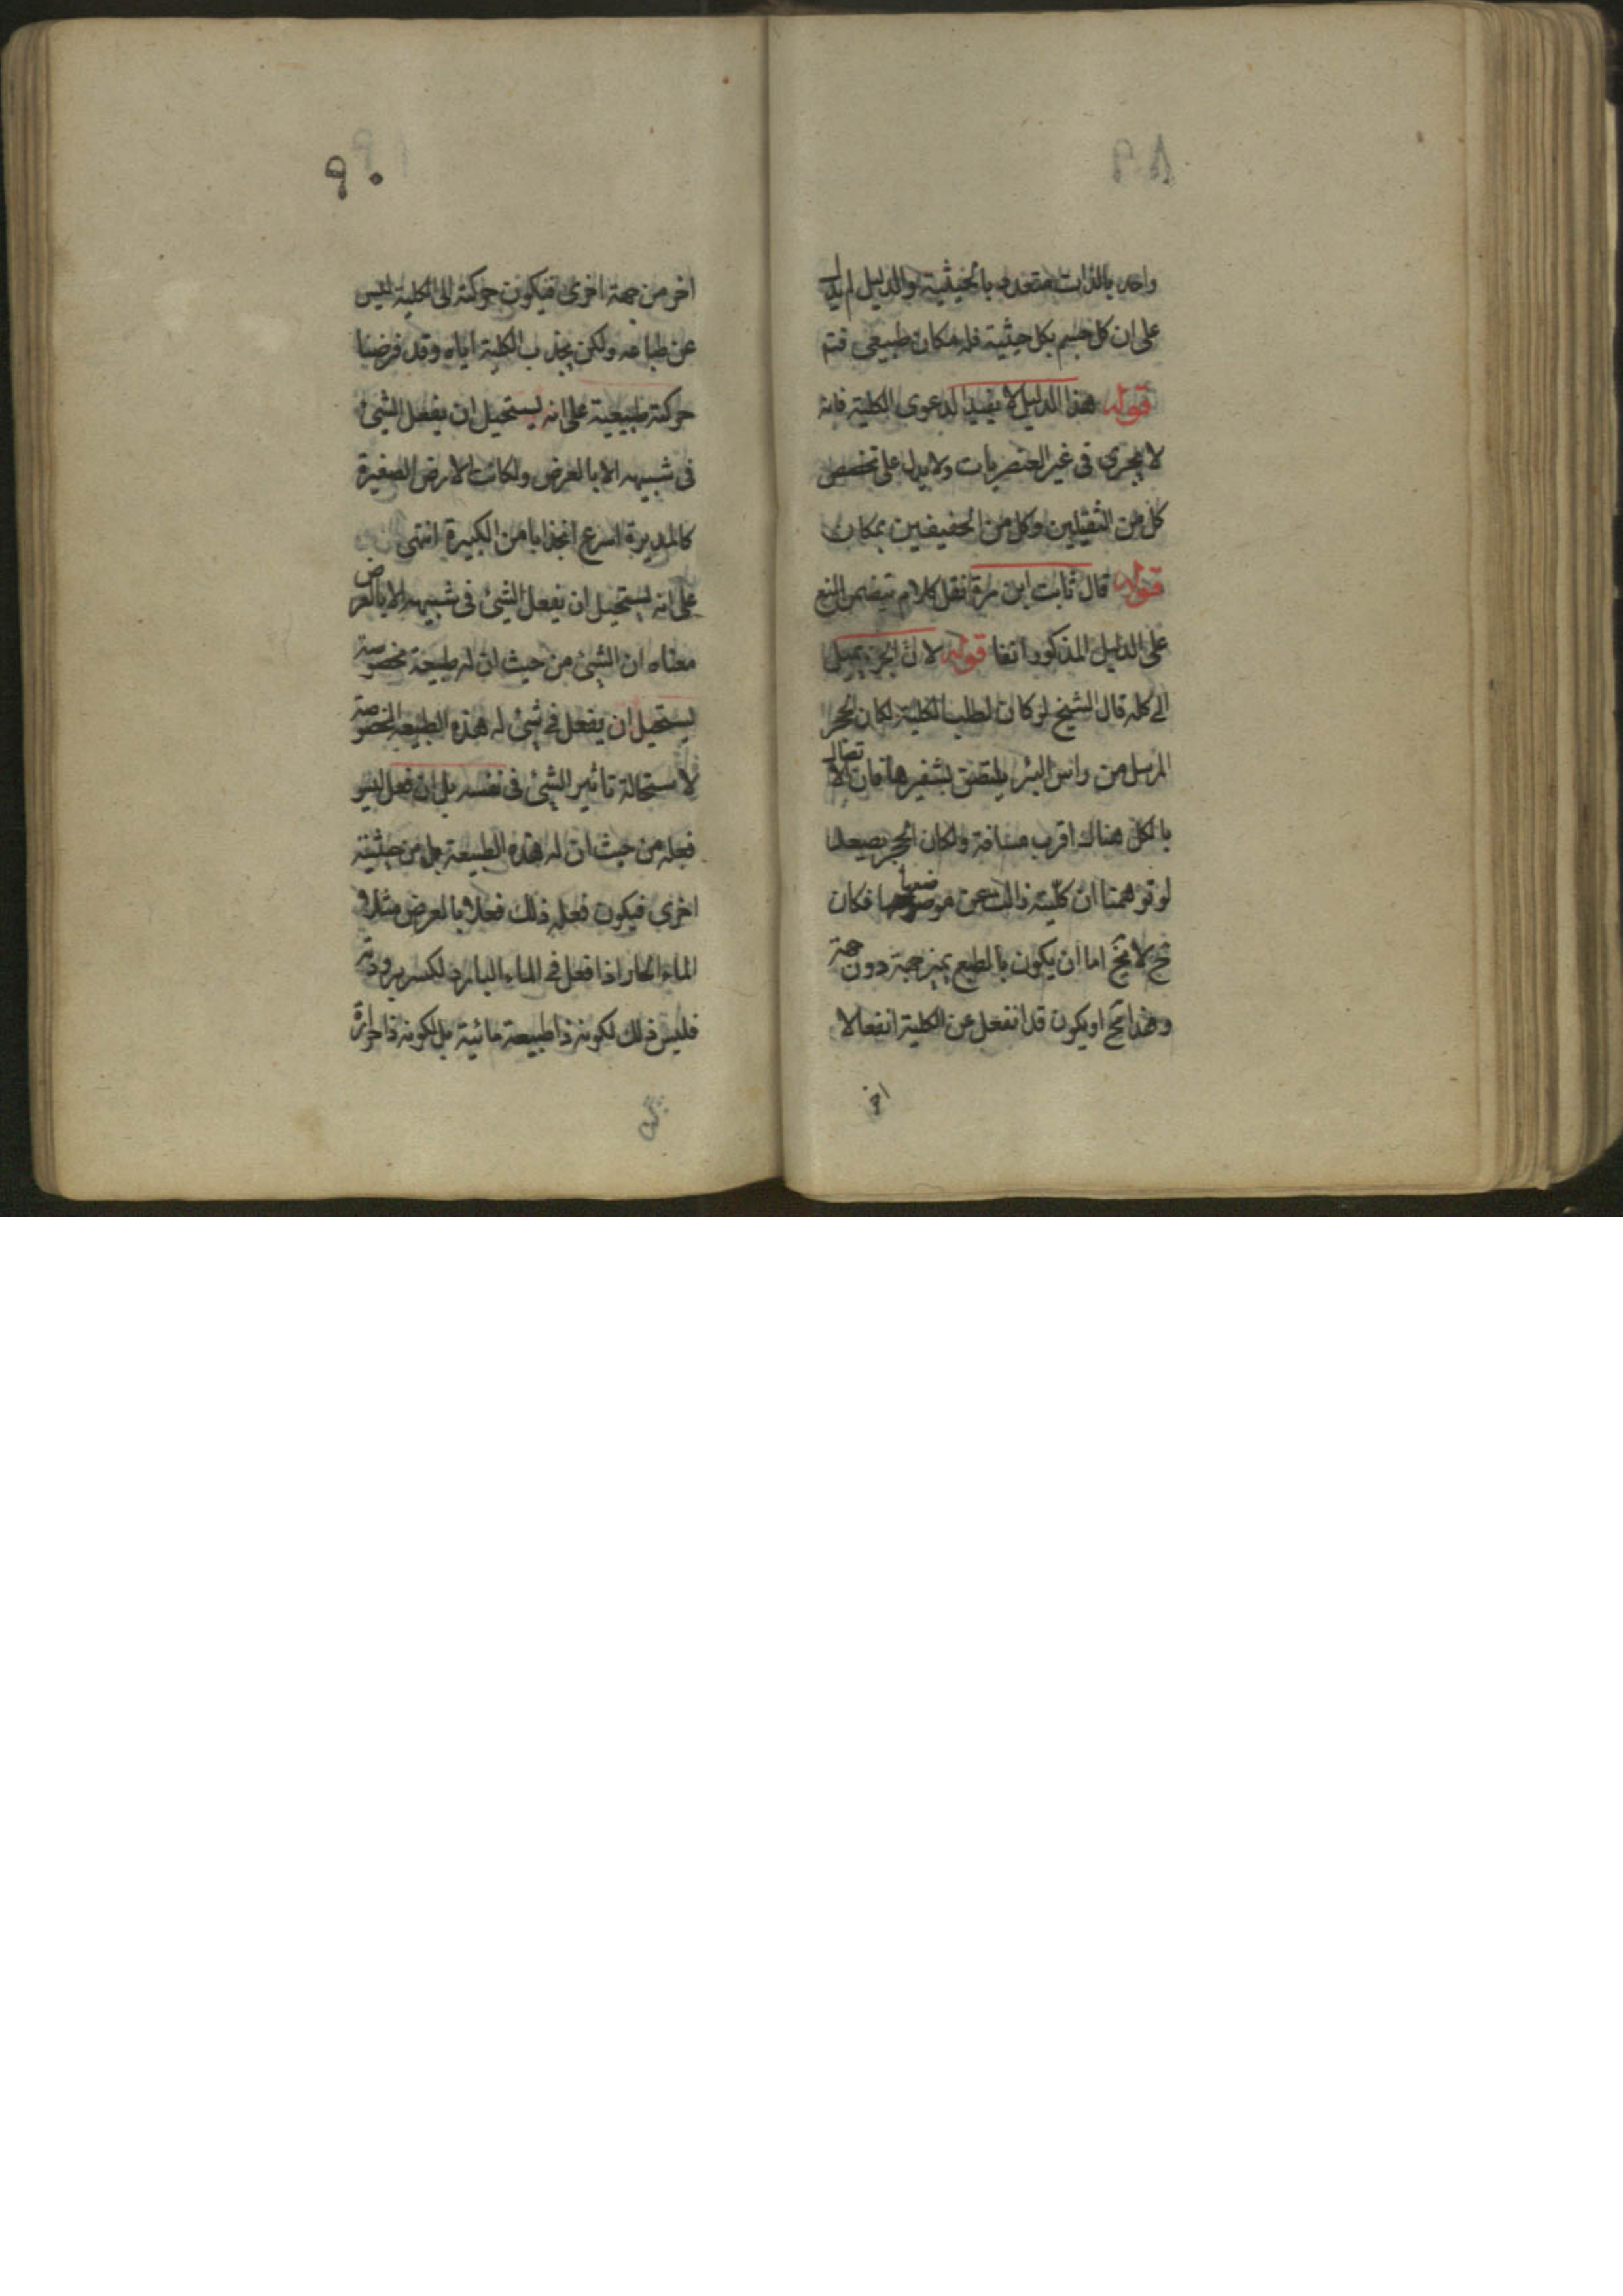 واحد بالذات متعدد بالحيثية والدليل لم يدل
على ان كل جسم بكل حيثية فله مكان طبيعى فتم
قوله هذا الدليل لا يفيد الدعوى الكلية فانه
لا يجرى فى غير العنصريات ولا يدل على تخصص
كل من الثقيلين وكل من الخفيفين بمكان
قوله قال ثابت ابن مرة نقل كلام يتضمن المنع
على الدليل المذكور انفا قوله لان الجزء يميل
الى كله قال الشيخ لو كان لطلب الكلية لكان الحجر
المرسل من راس البئر يلتصق بشفيرها فان الاتصال
بالكل هناك اقرب مسافة ولكان الحجر يصعد
لو توهمنا ان كليته زالت عن موضعها فكان
ح لا يخ اما ان يكون بالطبع يميز جهة دون جهة
وهذا مح او يكون قد انفعل عن الكلية انفعالا
اخر
٩٠
اخر من جهة اخرى فيكون حركته الى الكلية ليس
عن طباعه ولكن بجذب الكلية اياه وقد فرضنا
حركته طبيعية على انه يستحيل ان يفعل الشئ
فى شبيهه الا بالعرض ولكانت الارض الصغيرة
كالمدرة اسرع انجذابا من الكبيرة انتهى
على انه يستحيل ان يفعل الشئ فى شبيهه الا بالعرض
معناه ان الشئ من حيث ان له طبيعة مخصوصة
يستحيل ان يفعل فى شئ له هذه الطبيعة المخصوصة
لاستحالة تاثير الشئ فى نفسه بل ان فعل فليس
فعله من حيث ان له هذه الطبيعة بل من حيثية
اخرى فيكون فعله ذلك فعلا بالعرض مثلا
الماء الحار اذا فعل فى الماء البارد لكسر برودته
فليس ذلك لكونه ذا طبيعة مائية بل لكونه ذا حرارة